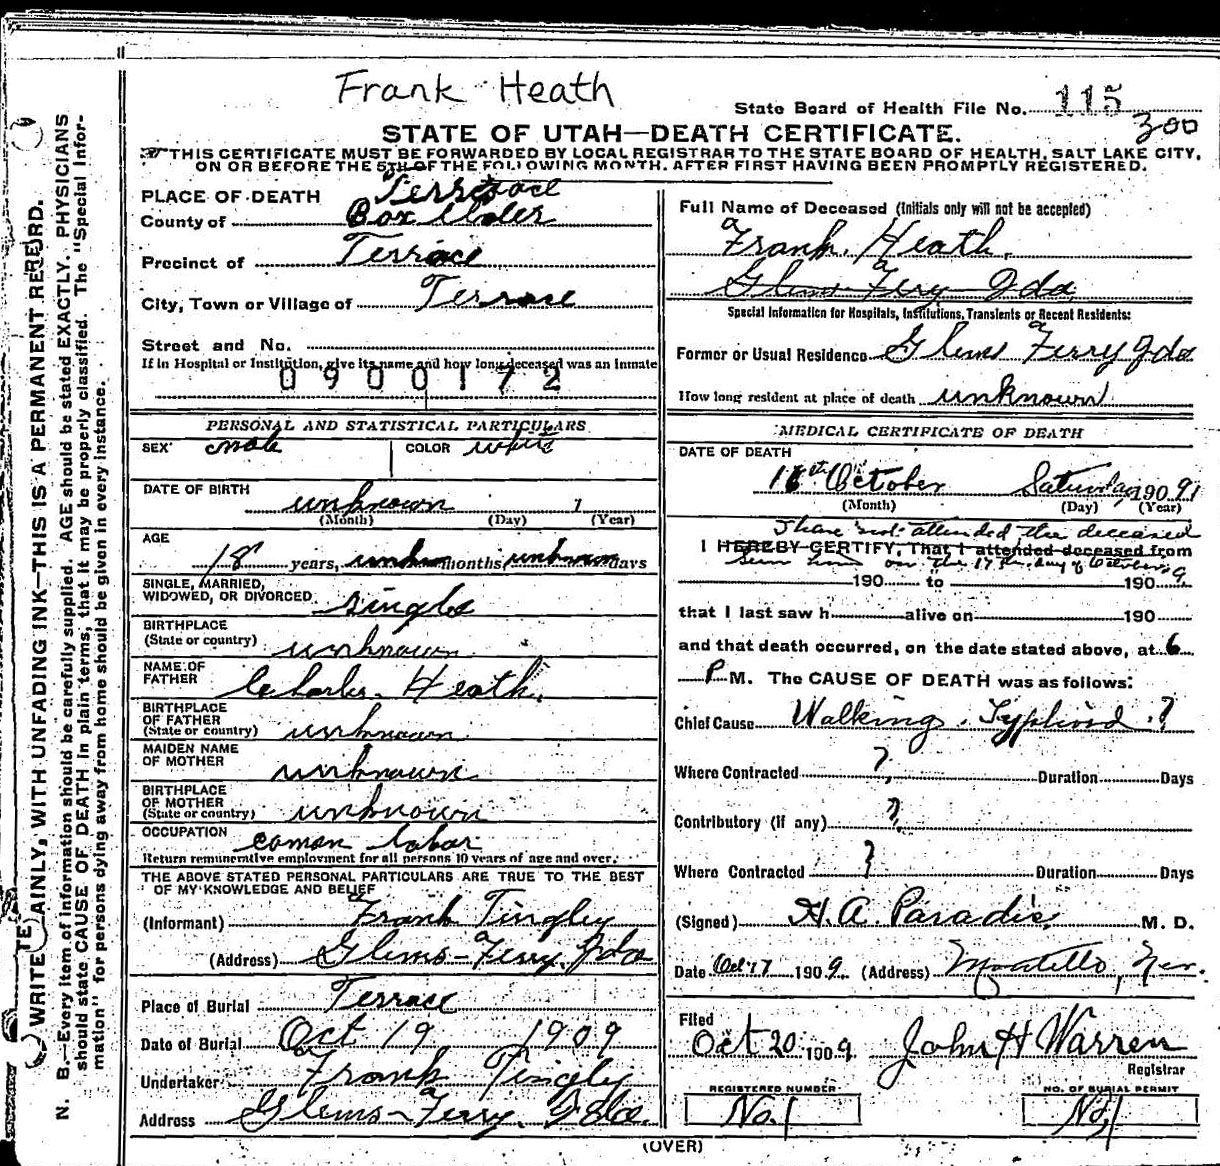 Frank Heath
State Board of Health File No. 115
300
STATE OF UTAH—DEATH CERTIFICATE.
THIS CERTIFICATE MUST BE FORWARDED BY LOCAL REGISTRAR TO THE STATE BOARD OF HEALTH, SALT LAKE CITY,
ON OR BEFORE THE 5TH OF THE FOLLOWING MONTH, AFTER FIRST HAVING BEEN PROMPTLY REGISTERED.
WRITE PLAINLY, WITH UNFADING INK—THIS IS A PERMANENT RECORD.
N. B.—Every item of information should be carefully supplied. AGE should be stated EXACTLY. PHYSICIANS
should state CAUSE OF DEATH in plain terms, that it may be properly classified. The "Special Infor-
mation" for persons dying away from home should be given in every instance.
PLACE OF DEATH Terrace
County of Box Elder
Precinct of Terrace
City, Town or Village of Terrace
Street and No.
If in Hospital or Institution, give its name and how long deceased was an inmate
0900172
PERSONAL AND STATISTICAL PARTICULARS
SEX male COLOR white
DATE OF BIRTH unknown 1
(Month) (Day) (Year)
AGE 18 years, unkn months unknown days
SINGLE, MARRIED,
WIDOWED, OR DIVORCED single
BIRTHPLACE
(State or country) unknown
NAME OF
FATHER Charles Heath.
BIRTHPLACE
OF FATHER
(State or country) unknown
MAIDEN NAME
OF MOTHER unknown
BIRTHPLACE
OF MOTHER
(State or country) unknown
OCCUPATION comon labor
Return remunerative employment for all persons 10 years of age and over.
THE ABOVE STATED PERSONAL PARTICULARS ARE TRUE TO THE BEST
OF MY KNOWLEDGE AND BELIEF
(Informant) Frank Tingley
(Address) Glems-Ferry, Ida
Place of Burial Terrace
Date of Burial Oct 19 1909
Undertaker Frank Tingley
Address Glems-Ferry, Ida.
Full Name of Deceased (Initials only will not be accepted)
Frank. Heath.
Glems-Fery Ida
Special Information for Hospitals, Institutions, Transients or Recent Residents:
Former or Usual Residence Glems Ferry Ida
How long resident at place of death unknown
MEDICAL CERTIFICATE OF DEATH
DATE OF DEATH
16th October Saturday 1909
(Month) (Day) (Year)
I have not attended the deceased
I HEREBY CERTIFY, That I attended deceased from
seen him on the 17th day of October 9
190 to 190
that I last saw h alive on 190
and that death occurred, on the date stated above, at 6
P M. The CAUSE OF DEATH was as follows:
Chief Cause Walking Typhoid ?
Where Contracted ? Duration Days
Contributory (if any) ?
Where Contracted ? Duration Days
(Signed) H. A. Paradis, M. D.
Date Oct 17 1909 (Address) Montello, Nev.
Filed
Oct 20 1909. John H Warren
Registrar
REGISTERED NUMBER NO. OF BURIAL PERMIT
No. 1 No, 1
(OVER)